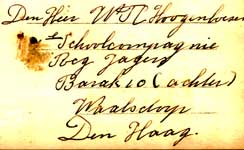 Den Heer Wm N Hoogenboezem
1e Schoolcompagnie
Reg Jagers
Barak 10 (achter)
Waalsdorp
Den Haag.